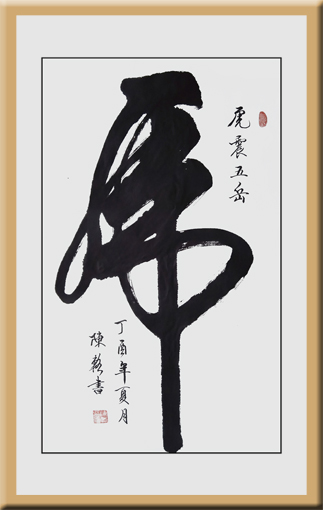 虎震五岳
虎
丁酉年夏月
陳毅書